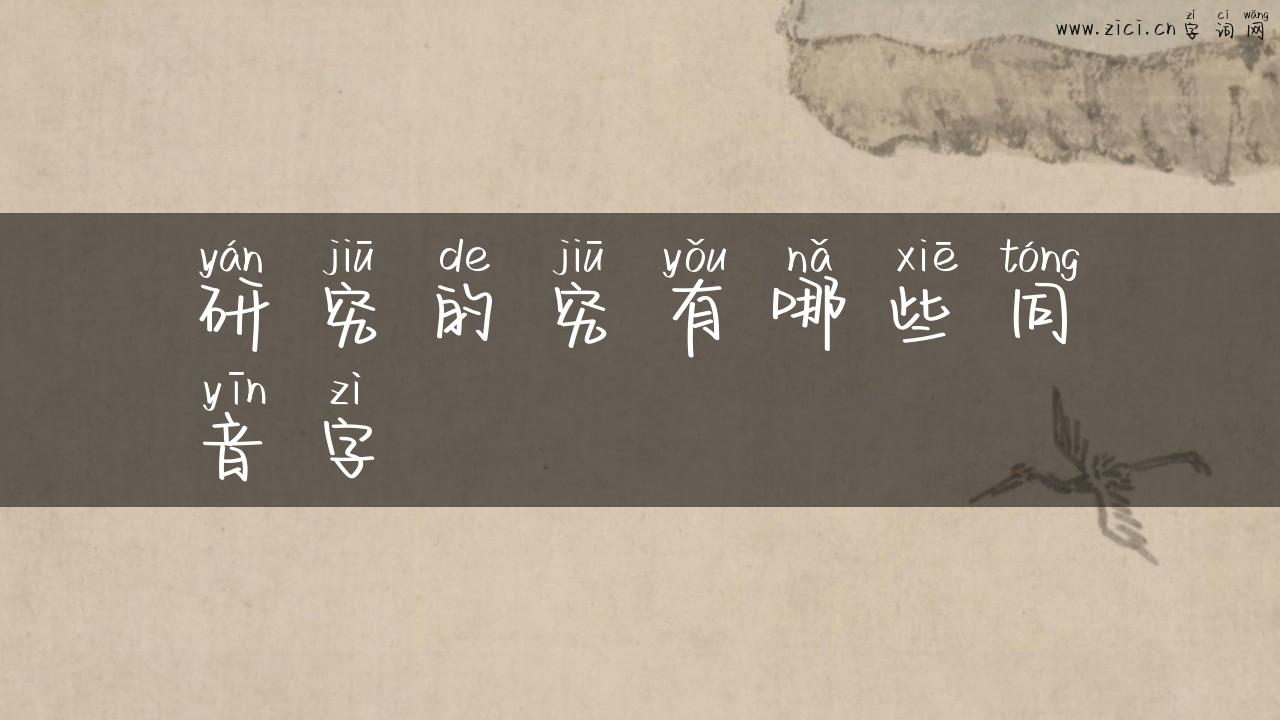 zì cí wǎng
www.zici.cn字词网
yán jiū de jiū yǒu nǎ xiē tóng
研究的究有哪些同
yīn zì
音字